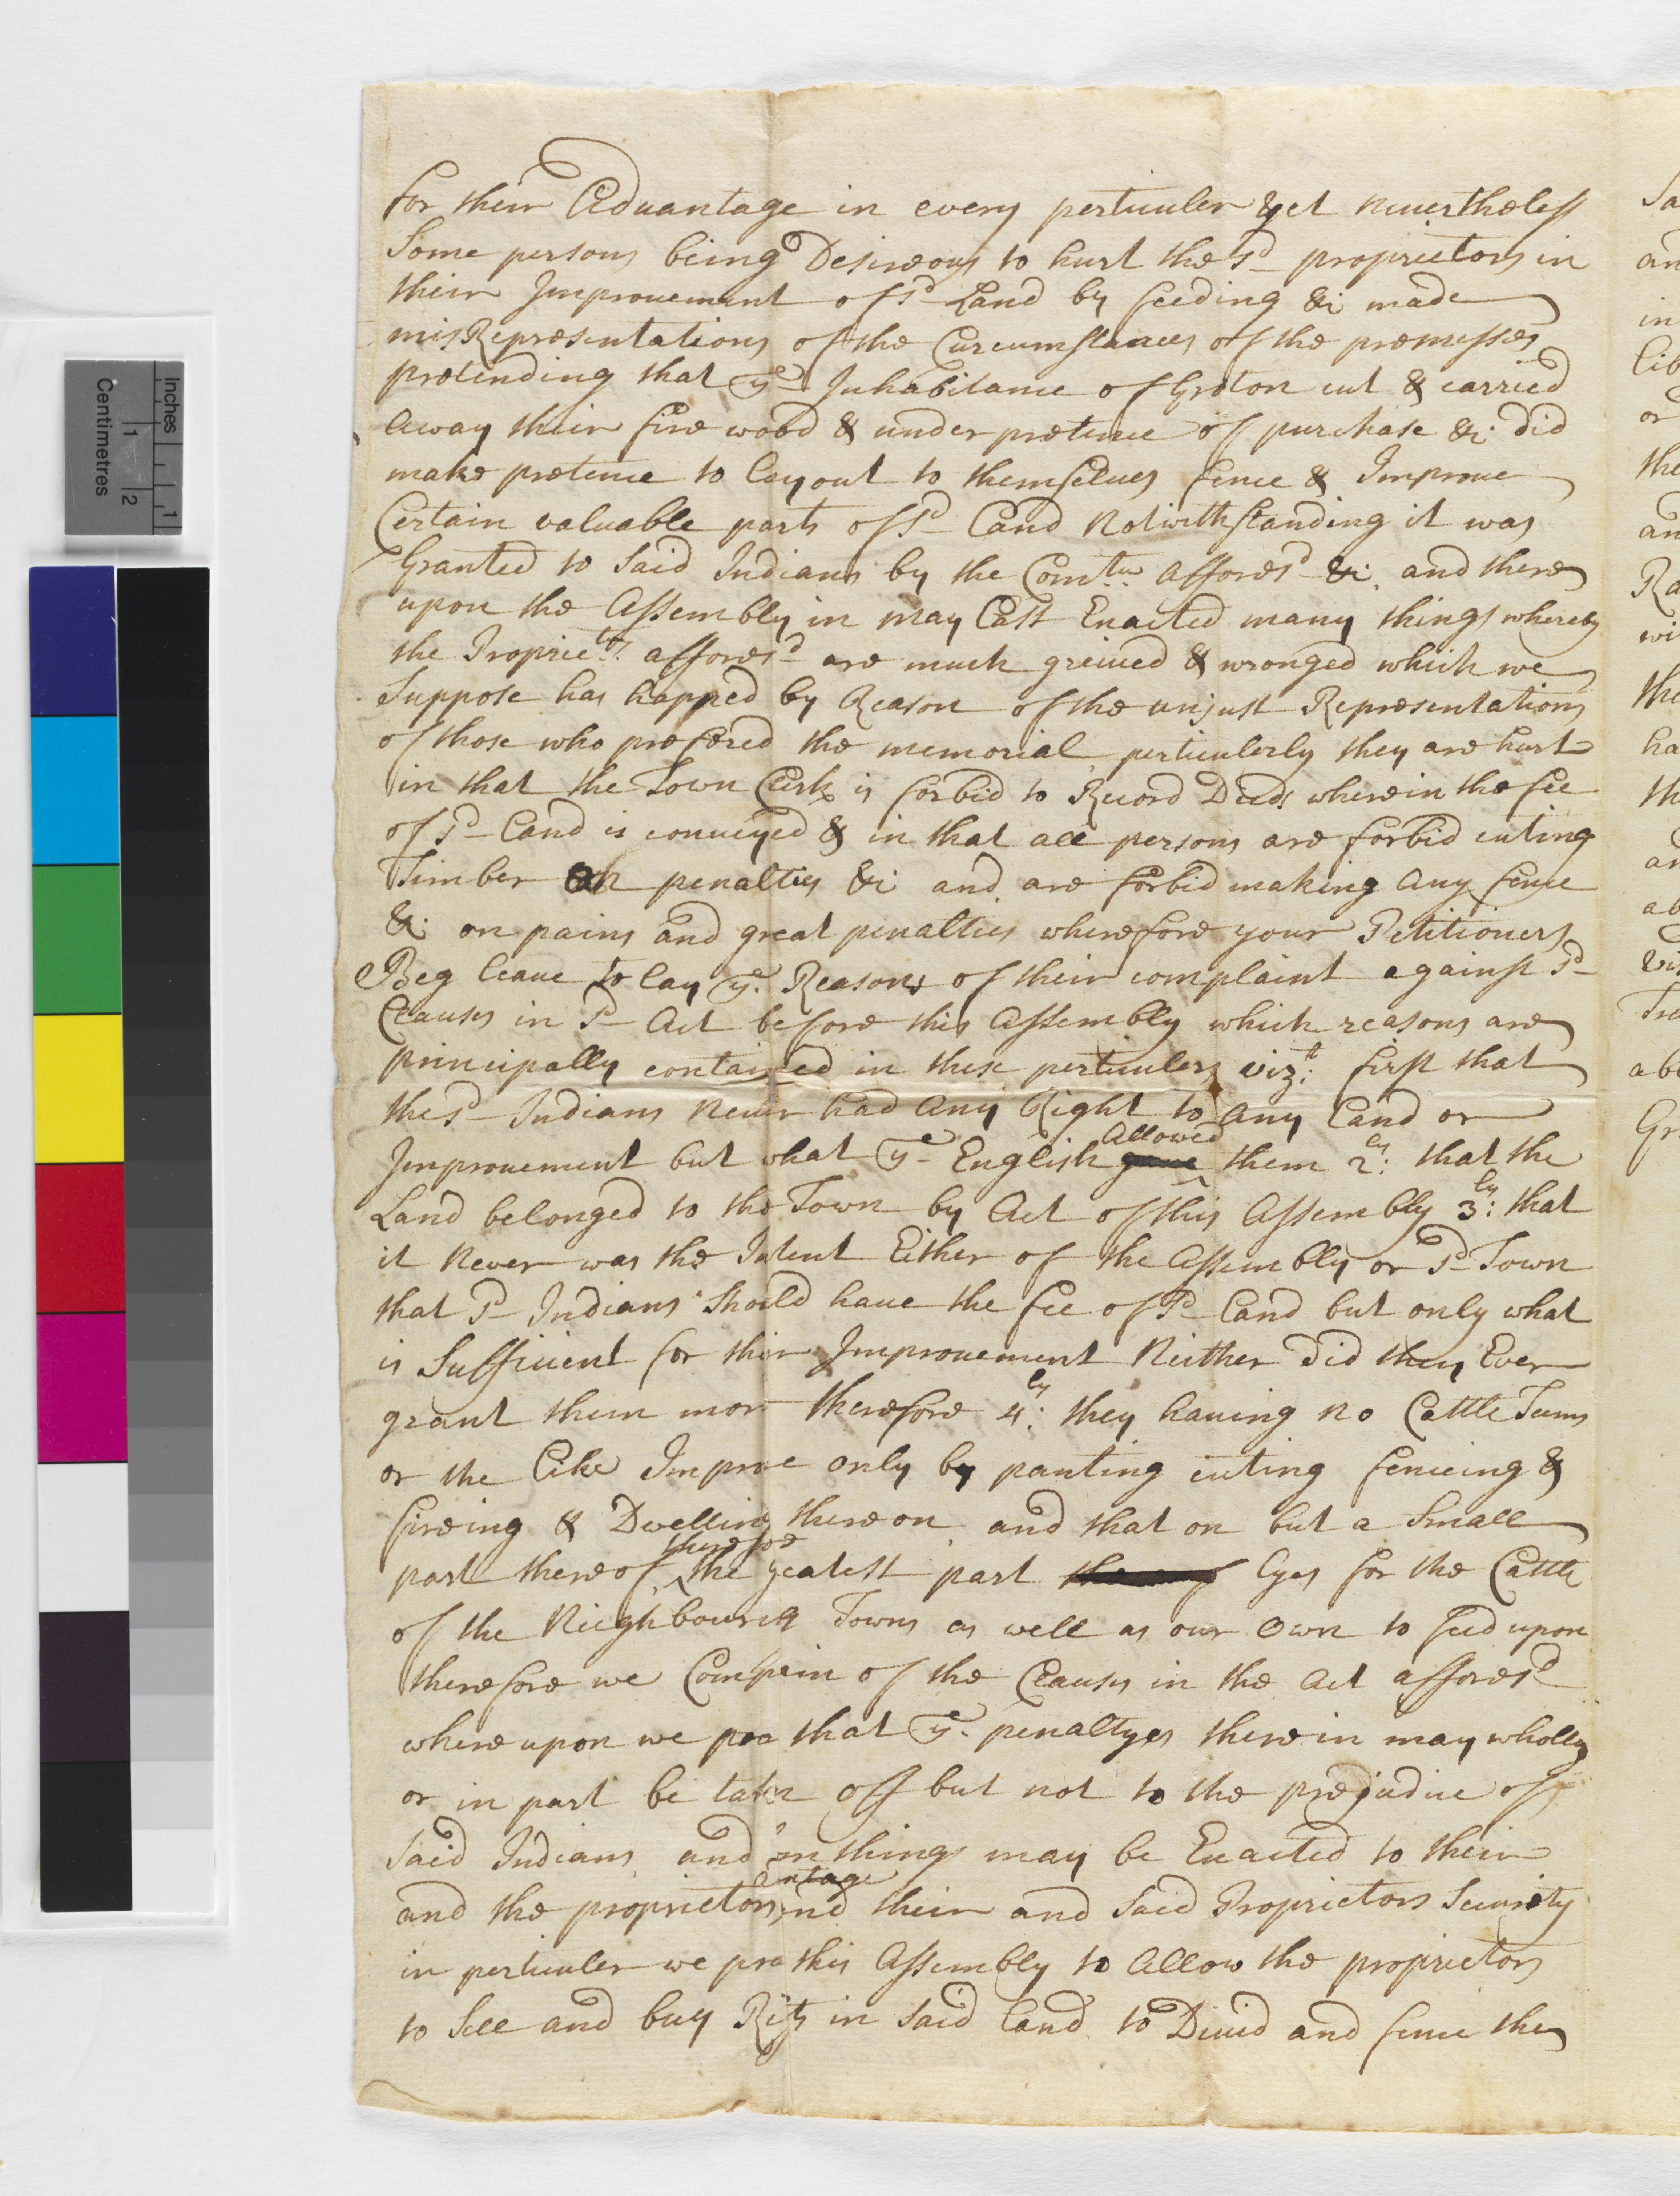 for their Aduantage in every perticuler & yet neuertheless
Some persons being Desireous to hurt the sd proprietors in
their Improuement of sd Land by feeding &c made
misRepresentations of the Curcumstances of the premesses
pretending that ye Inhabitance of Groton cut & carried
away their fire wood & under pretence of purchase &c did
make pretence to layout to themselues fence & Improue
Certain valuable parts of sd Land Notwithstanding it was
Granted to Said Indians by the Comtee afforesd &c. and there
upon the Assembly in may Last Enacted many things whereby
the Proprietrs afforesd are much greiued & wronged which we
Suppose has happed by Reason of the unjust Representations
of those who prefered the memorial perticulerly they are hurt
in that the Town Clerk is forbid to Record Deeds wherein the fee
of sd Land is conueyed & in that all persons are forbid cuting
Timber On penalties &c and are forbid making any fence
&c on pains and great penalties wherefore your Petitioners
Beg leaue to lay ye Reasons of their complaint against sd
Clauses in sd Act before this Assembly which reasons are
principally contained in these perticulers vizt: first that
the sd Indians Neuer had any Right to any Land or
Improuement but what ye English allowed them 2ly: that the
Land belonged to the Town by Act of this Assembly 3ly: that
it Never was the Intent Either of the Assembly or sd Town
that sd Indians Should haue the fee of sd Land but only what
is Suffitient for thier Improuement Neither did they Ever
grant them more therefore 4ly: they hauing no Cattle Teems
or the Like Improve only by panting cuting fenceing &
fireing & Dwelling thereon and that on but a Small
part thereof therefore the geatest part Lyes for the Cattle
of the Nieghbouring Towns as well as our Own to feed upon
therefore we Complain of the Clauses in the Act afforesd
where upon we pra that ye penaltyes therein may wholly
or in part be taken off but not to the prejudice of
Said Indians and things may be Enacted to their
antage
and the proprietors and their and Said Proprietors Security
in perticuler we pra this Assembly to Allow the proprietors
to Sell and buy Rits in Said Land to Diuid and fence the
Sa
an
in
lib
or
the
an
Ra
wi
the
ha
th
an
ab
abo
Gr